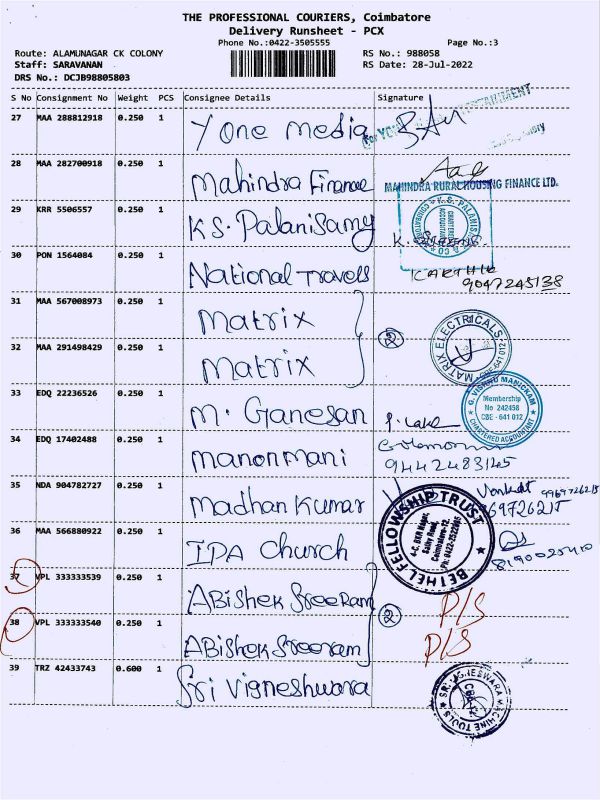 THE PROFESSIONAL COURIERS, Coimbatore
Delivery Runsheet - PCX
Phone No.:0422-3505555 Page No.:3
Route: ALAMUNAGAR CK COLONY RS No.: 988058
Staff: SARAVANAN RS Date: 28-Jul-2022
DRS No.: DCJB98805803
S No Consignment No Weight PCS Consignee Details Signature
27 MAA 288812918 0.250 1 Y One media
28 MAA 282700918 0.250 1 Mahindra Finance
MAHINDRA RURAL HOUSING FINANCE LTD.
29 KRR 5506557 0.250 1 K.S. Palanisamy
30 PON 1564084 0.250 1 National Travels KARTHIK
9047245138
31 MAA 567008973 0.250 1 Matrix
32 MAA 291498429 0.250 1 Matrix 2 MATRIX ELECTRICALS
CBE-641 012
33 EDQ 22236526 0.250 1 M. Ganesan
G. VISHNU MANICKAM
Membership
No 242458
CBE - 641 012
CHARTERED ACCOUNTANT
34 EDQ 17402488 0.250 1 manonmani
9442483145
35 NDA 904782727 0.250 1 Madhan Kumar Venkat
36 MAA 566880922 0.250 1 IPA Church
BETHEL FELLOWSHIP TRUST
Coimbatore-12.
37 VPL 333333539 0.250 1 ABishek Sreeram P/S
38 VPL 333333540 0.250 1 ABishek Sreeram 2 P/S
39 TRZ 42433743 0.600 1 Sri Vigneshwara
SRI VIGNESWARA MACHINE TOOLS